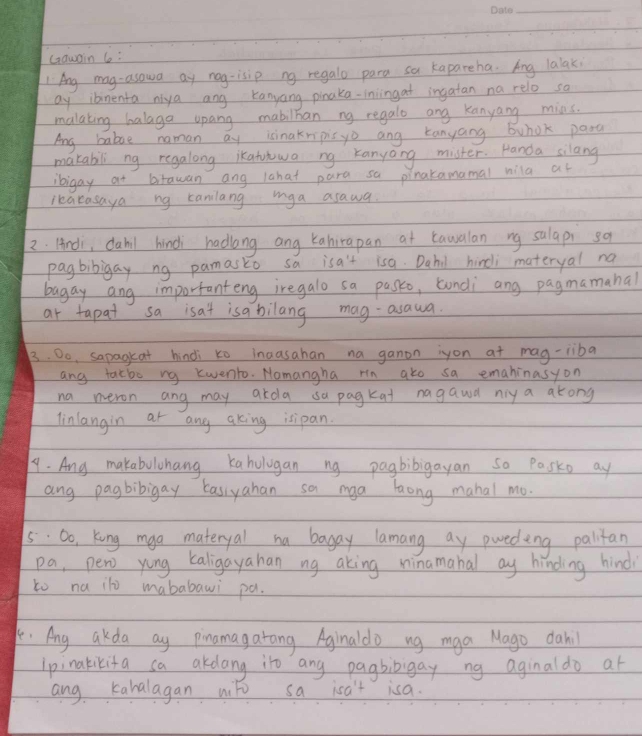 Date
Gawain 6:
1. Ang mag-asawa ay nag-isip ng regalo para sa kapareha. Ang lalaki
ay ibinenta niya ang kanyang pinaka-iniingat ingatan na relo sa
malaking halaga upang mabilhan ng regalo ang kanyang misis.
Ang babae naman ay isinakripisyo ang kanyang buhok para
makabili ng regalong ikatutuwa ng kanyang mister. Handa silang
ibigay at bitawan ang lahat para sa pinakamamahal nila at
ikakasaya ng kanilang mga asawa.
2. Hindi, dahil hindi hadlang ang kahirapan at kawalan ng salapi sa
pagbibigay ng pamasko sa isa't isa. Dahil hindi materyal na
bagay ang importanteng iregalo sa pasko, kundi ang pagmamahal
at tapat sa isa't isa bilang mag-asawa.
3. Oo, sapagkat hindi ko inaasahan na ganon iyon at mag-iiba
ang takbo ng kwento. Namangha rin ako sa emahinasyon
na meron ang may akda sapagkat nagawa niya akong
linlangin at ang aking isipan.
4. Ang makabuluhang kahulugan ng pagbibigayan sa Pasko ay
ang pagbibigay kasiyahan sa mga taong mahal mo.
5. Oo, kung mga materyal na bagay lamang ay pwedeng palitan
pa, pero yung kaligayahan ng aking minamahal ay hinding hindi
ko na ito mababawi pa.
6. Ang akda ay pinamagatang Aginaldo ng mga Mago dahil
Ipinakikita sa akdang ito ang pagbibigay ng aginaldo at
ang kahalagan nito sa isa't isa.